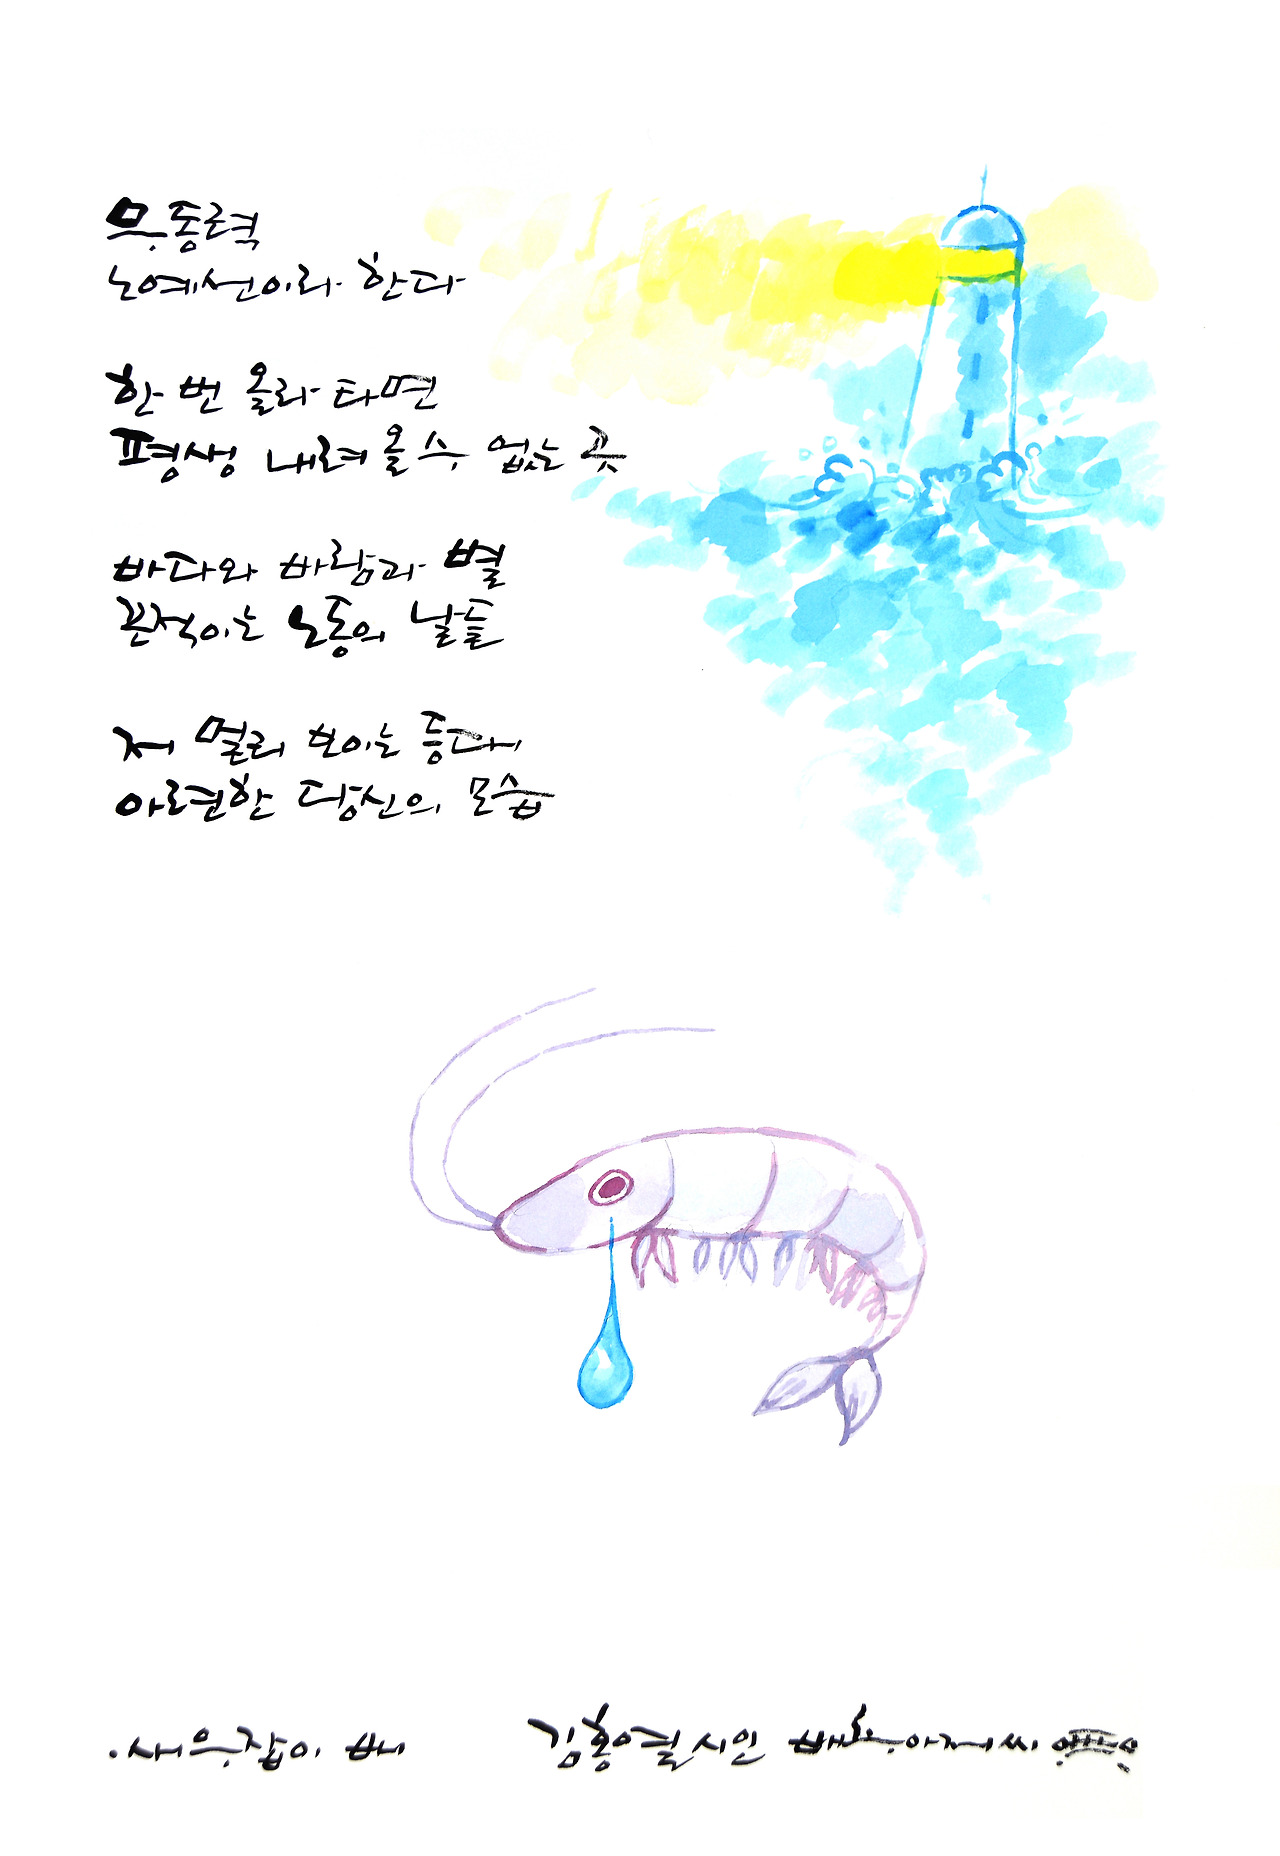 무동력
노예선이라 한다
한 번 올라 타면
평생 내려올 수 없는 곳
바다와 바람과 별
끈적이는 노동의 날들
저 멀리 보이는 등대
아련한 당신의 모습
·새우잡이 배
김홍열 시인